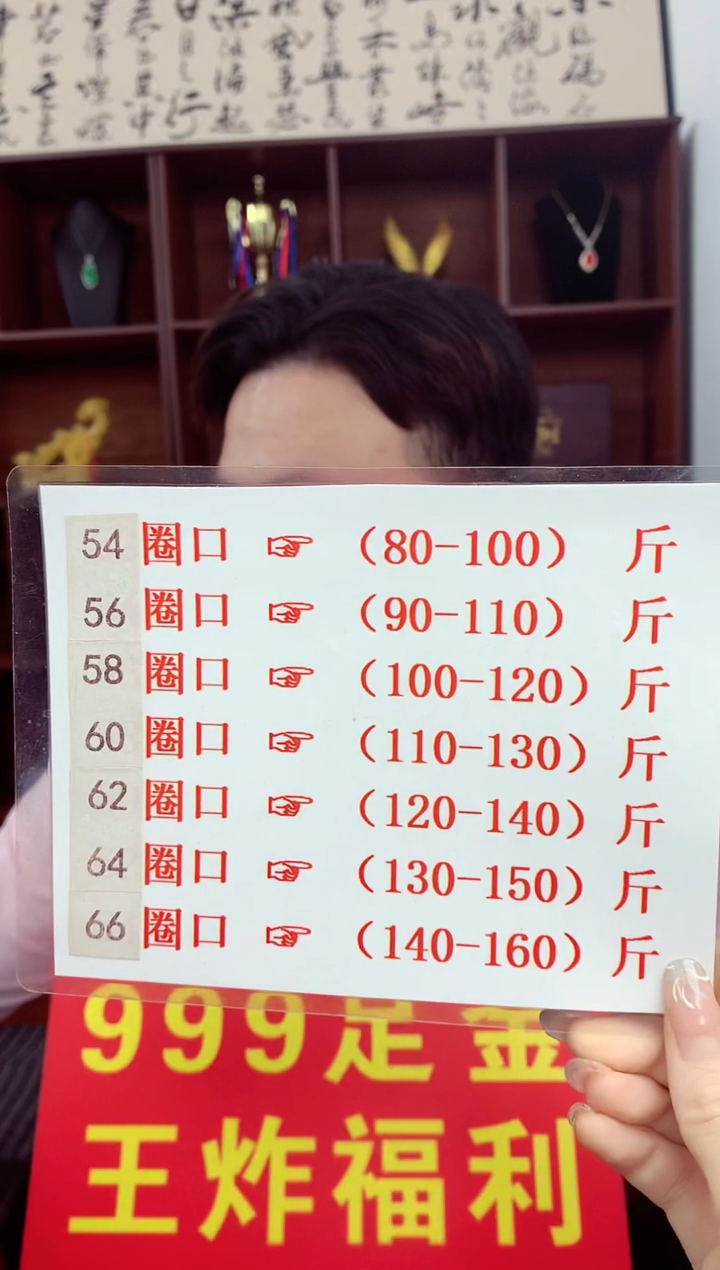 54圈口 ☞ （80-100） 斤
56圈口 ☞ （90-110） 斤
58圈口 ☞ （100-120） 斤
60圈口 ☞ （110-130） 斤
62圈口 ☞ （120-140） 斤
64圈口 ☞ （130-150） 斤
66圈口 ☞ （140-160） 斤
999足金
王炸福利